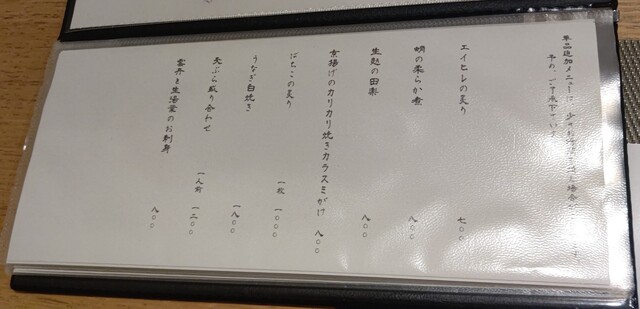 単品追加メニューは、少々お時間
予め、ご了承下さい
エイヒレの炙り 七〇〇
蛸の柔らか煮 八〇〇
生麩の田楽 八〇〇
京揚げのカリカリ焼きカラスミがけ 八〇〇
ばちこの炙り 一枚 一〇〇〇
うなぎ白焼き 一八〇〇
天ぷら盛り合わせ 一人前 一二〇〇
雲丹と生湯葉のお刺身 八〇〇